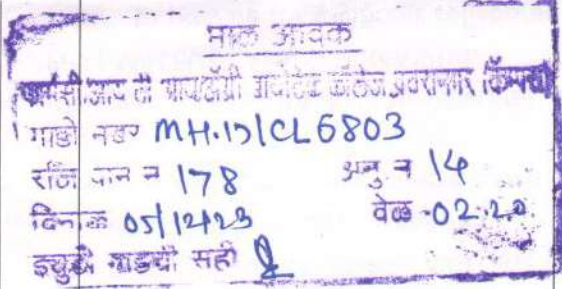 माल आवक
फार्मसी आय टी आय अॅग्री कॉलेज प्रवरानगर
गाडी नंबर MH.17/CL6803
रजि पान न 178 अनु न 14
दिनांक 05/12/23 वेळ -02.20
ड्युटी गार्डची सही